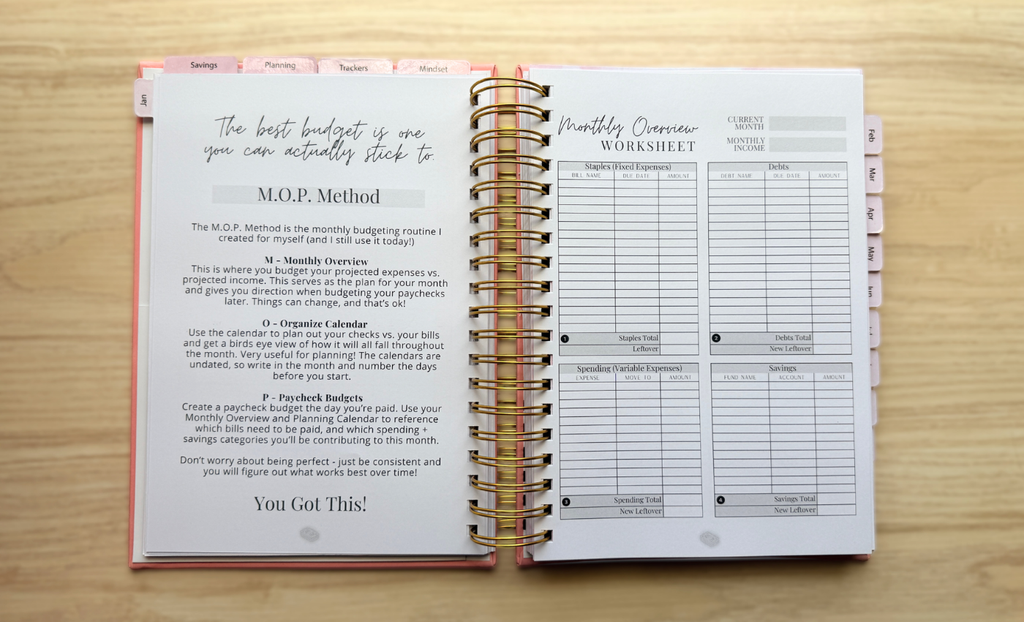 Savings
Planning
Trackers
Mindset
Jan
The best budget is one
you can actually stick to.
M.O.P. Method
The M.O.P. Method is the monthly budgeting routine I
created for myself (and I still use it today!)
M - Monthly Overview
This is where you budget your projected expenses vs.
projected income. This serves as the plan for your month
and gives you direction when budgeting your paychecks
later. Things can change, and that's ok!
O - Organize Calendar
Use the calendar to plan out your checks vs. your bills
and get a birds eye view of how it will all fall throughout
the month. Very useful for planning! The calendars are
undated, so write in the month and number the days
before you start.
P - Paycheck Budgets
Create a paycheck budget the day you're paid. Use your
Monthly Overview and Planning Calendar to reference
which bills need to be paid, and which spending +
savings categories you'll be contributing to this month.
Don't worry about being perfect - just be consistent and
you will figure out what works best over time!
You Got This!
Monthly Overview
WORKSHEET
CURRENT
MONTH
MONTHLY
INCOME
Staples (Fixed Expenses)
BILL NAME DUE DATE AMOUNT
1 Staples Total
Leftover
Debts
DEBT NAME DUE DATE AMOUNT
2 Debts Total
New Leftover
Spending (Variable Expenses)
EXPENSE MOVE TO AMOUNT
3 Spending Total
New Leftover
Savings
FUND NAME ACCOUNT AMOUNT
4 Savings Total
New Leftover
Feb
Mar
Apr
May
Jun